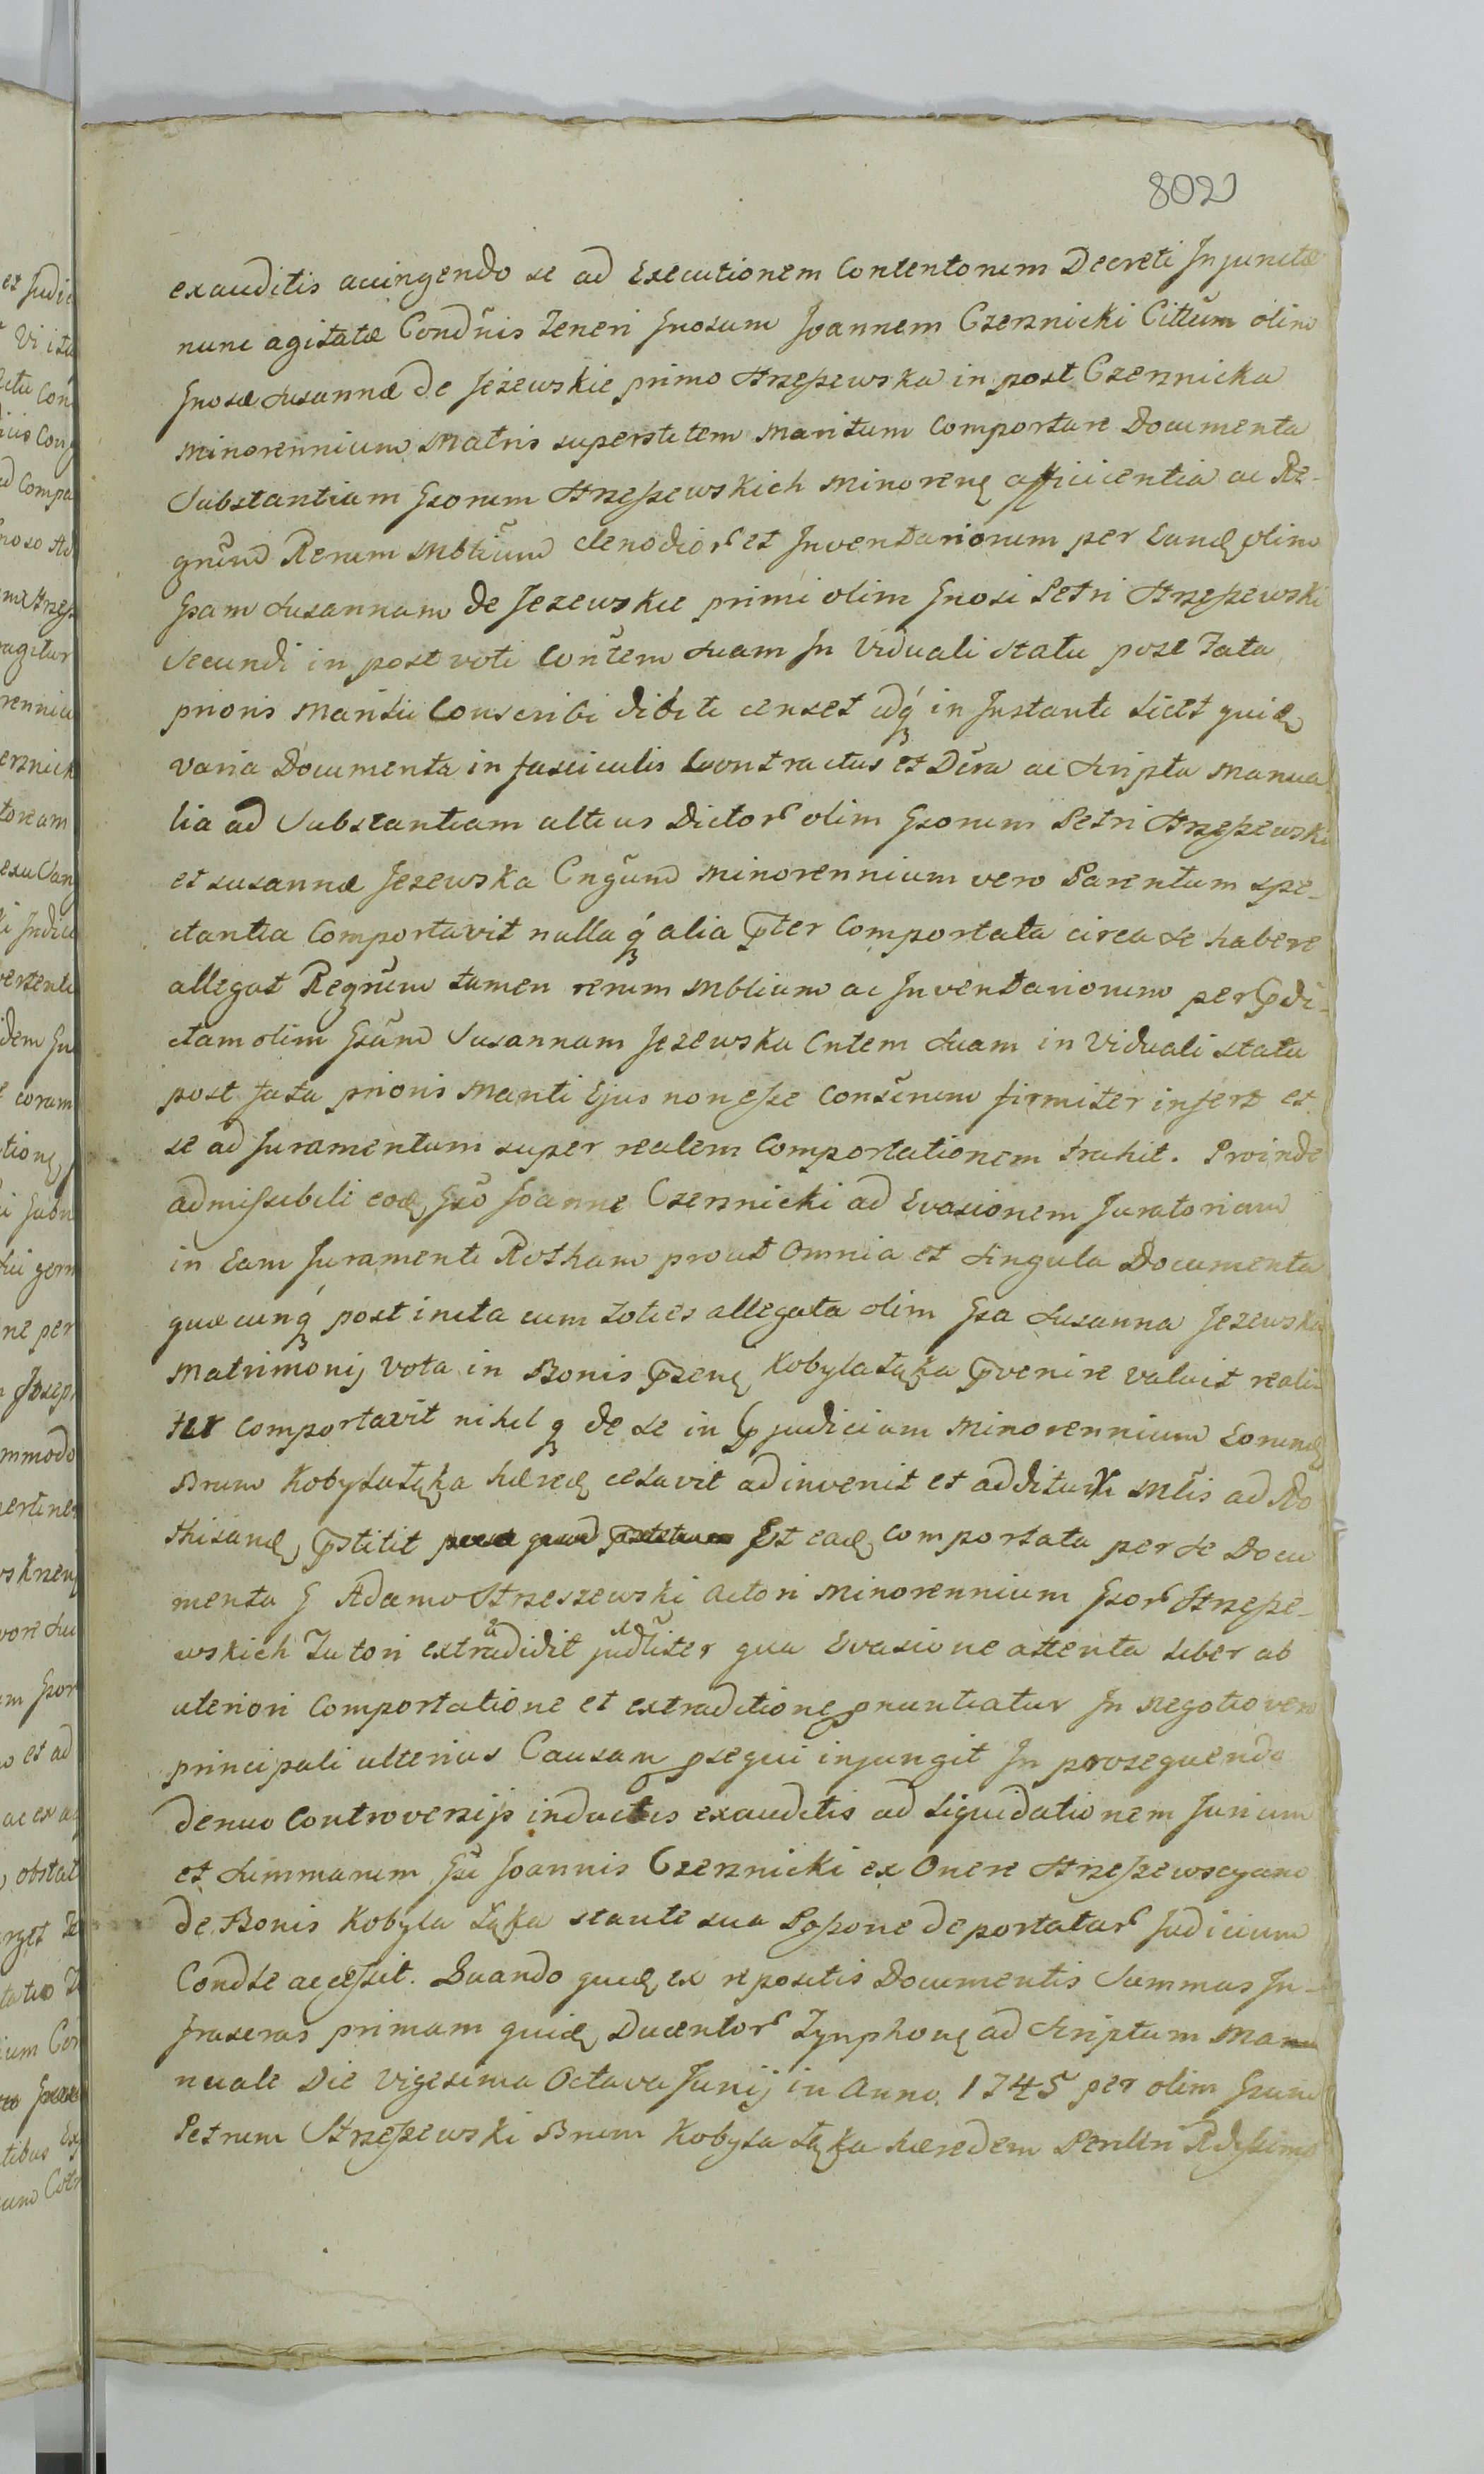 802
exauditis accingendo se ad Executionem Contentorum Decreti Injunctæ
nunc agitatæ Condñis Teneri Gnosum Joannem Czernnicki Cittũm olim
Gnosæ Susannæ de Jeżewskie primo Strzeszewska in post Czernnicka
minorennium Matris superstitem Maritum Comportare Documenta
Substantiam Gsorum Strzeszewskich Minoreng afficientia ac Re-
grũm Rerum Mblium clenodior et Inventariorum per Eand olim
Gsam Susannam de Jezewskie primi olim Gnosi Petri Strzeszewski
Secundi in post voti Contem suam In Viduali statu post Fata
prioris Mariti Conscribi debiti censet idq in Instanti licet quid
varia Documenta in fasciculis Contractus et Dcra ac Scripta Manua
lia ad Substantiam altius Dictor olim Gsorum Petri Strzeszewski
et susannæ Jezewska Cngũm minorennium vero Parentum spe-
ctantia Comportavit nulla q alia pter Comportata circa se habere
allegat Regrũm tamen rerum Mblium ac Inventariorum per pdi-
ctam olim Gsãm Susannam Jezewska Cntem suam in Viduali statu
post fata prioris Mariti Ejus non esse Consĩnum firmiter infert et
se ad Juramentum super realem Comportationem trahit. Proinde
admissibili eod Gsõ Joanne Czernnicki ad Evasionem Juratoriam
in Eam Juramenti Rotham prout Omnia et Singula Documenta
quæcunq post inita cum toties allegata olim Gsa Susanna Jezewska
Matrimonij Vota in Bonis pseng Kobylałąka pvenire valuit reali
ter Comportavit nihil q de se in pjudicium Minorennium Eorund
Brum Kobyłałąka hæred celavit adinvenit et additur Mlis ad Ro
thisand pstitit Et ead comportata per se Docu
menta G Adamo Strzeszewski Actori Minorennium Gsor Strzesze-
wskich Tutori extradidit judliter qua Evasione attenta liber ab
uteriori Comportatione et extraditione pnuntiatur In Negotio vero
principali ulterius Causam psequi injungit In prosequendo
denuo Controversijs inductis exauditis ad Liquidationem Jurium
et Summarum Gsi Joannis Czernnicki ex Onere Strzeszewscyano
de Bonis Kobyla Łąka stante sua Pssione deportatar Judicium
Condle accessit. Quando quid ex repositis Documentis Summas In-
frascras primam quid Ducentor Tynphong ad Scriptum Ma
nuale Die Vigesima Octava Junij in Anno 1745 per olim Gsum
Petrum Strzeszewski Brum Kobyła łąka hæredem Perlln Rdissimo